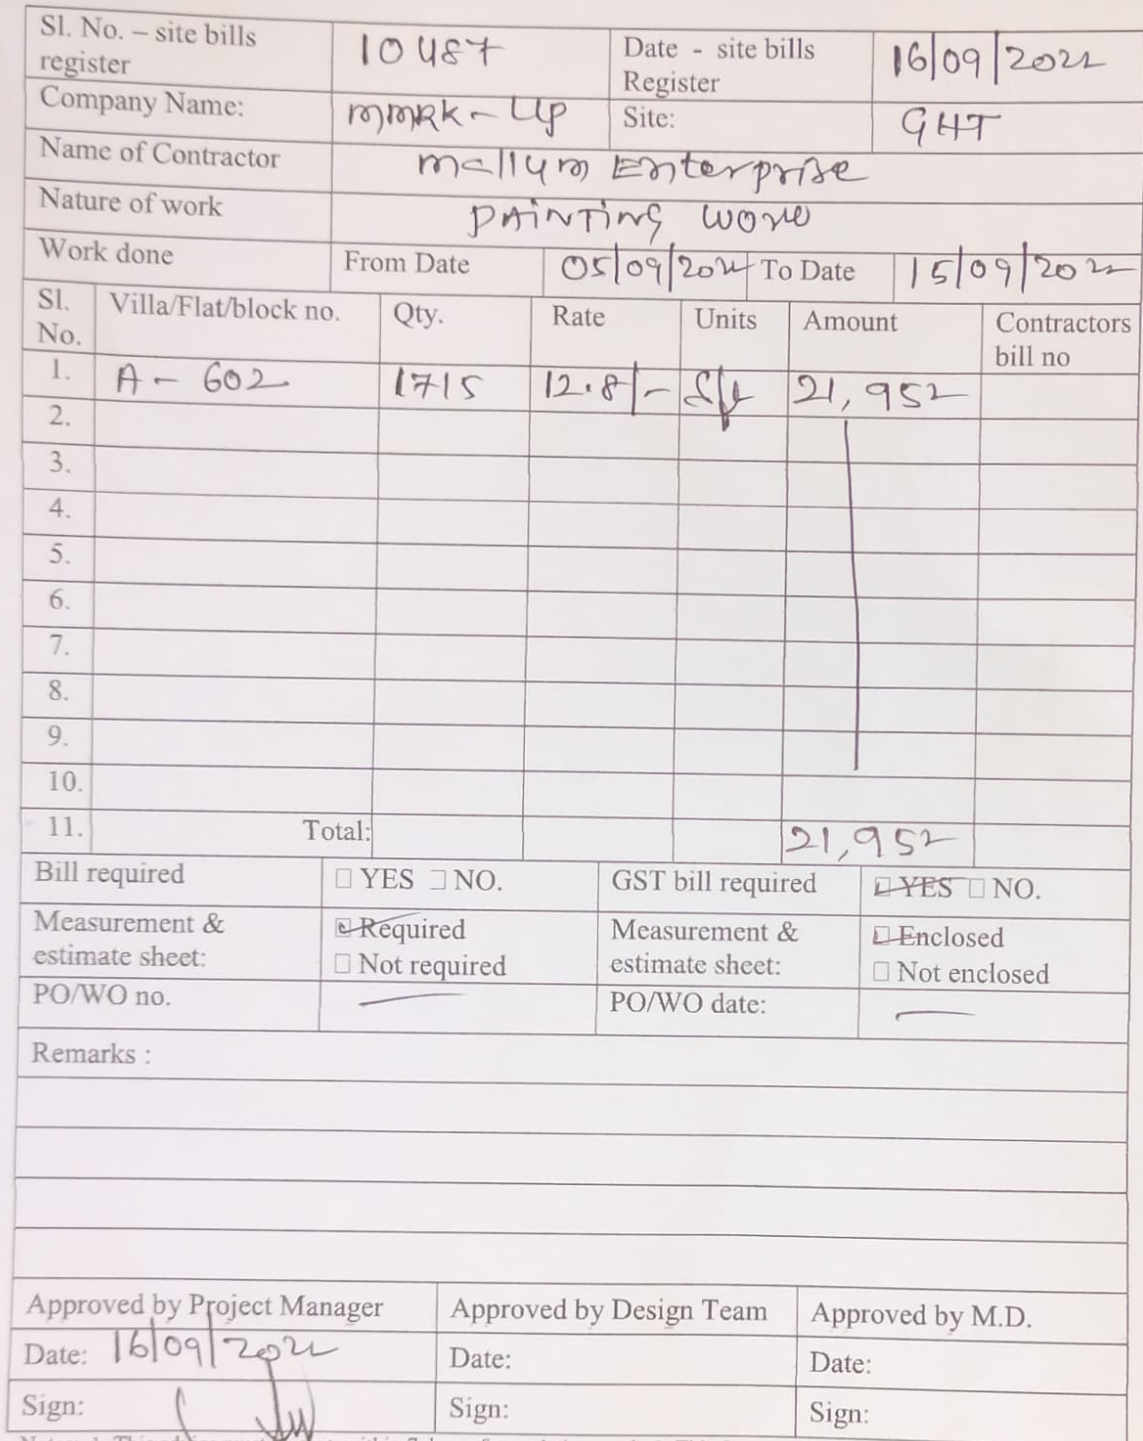 Sl. No. – site bills register 10487 Date - site bills Register 16/09/2022
Company Name: MMRK-LLP Site: GHT
Name of Contractor Mallum Enterprise
Nature of work PAINTING WORK
Work done From Date 05/09/2022 To Date 15/09/2022
Sl. No. Villa/Flat/block no. Qty. Rate Units Amount Contractors bill no
1. A - 602 1715 12.8/- Sft 21,952
2.
3.
4.
5.
6.
7.
8.
9.
10.
11. Total: 21,952
Bill required □ YES □ NO. GST bill required □ YES □ NO.
Measurement & estimate sheet: □ Required □ Not required Measurement & estimate sheet: □ Enclosed □ Not enclosed
PO/WO no. — PO/WO date: —
Remarks :
Approved by Project Manager Approved by Design Team Approved by M.D.
Date: 16/09/2022 Date: Date:
Sign: Sign: Sign: